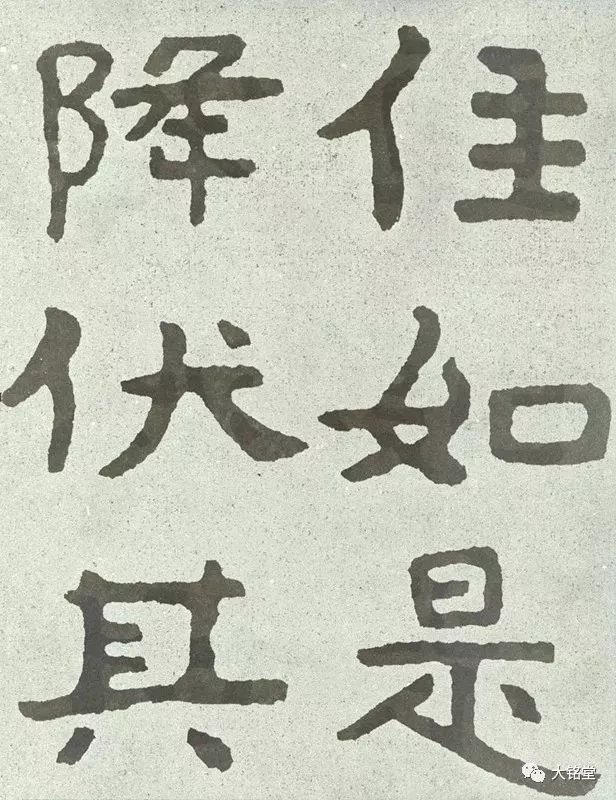 住如是
降伏其
大铭堂